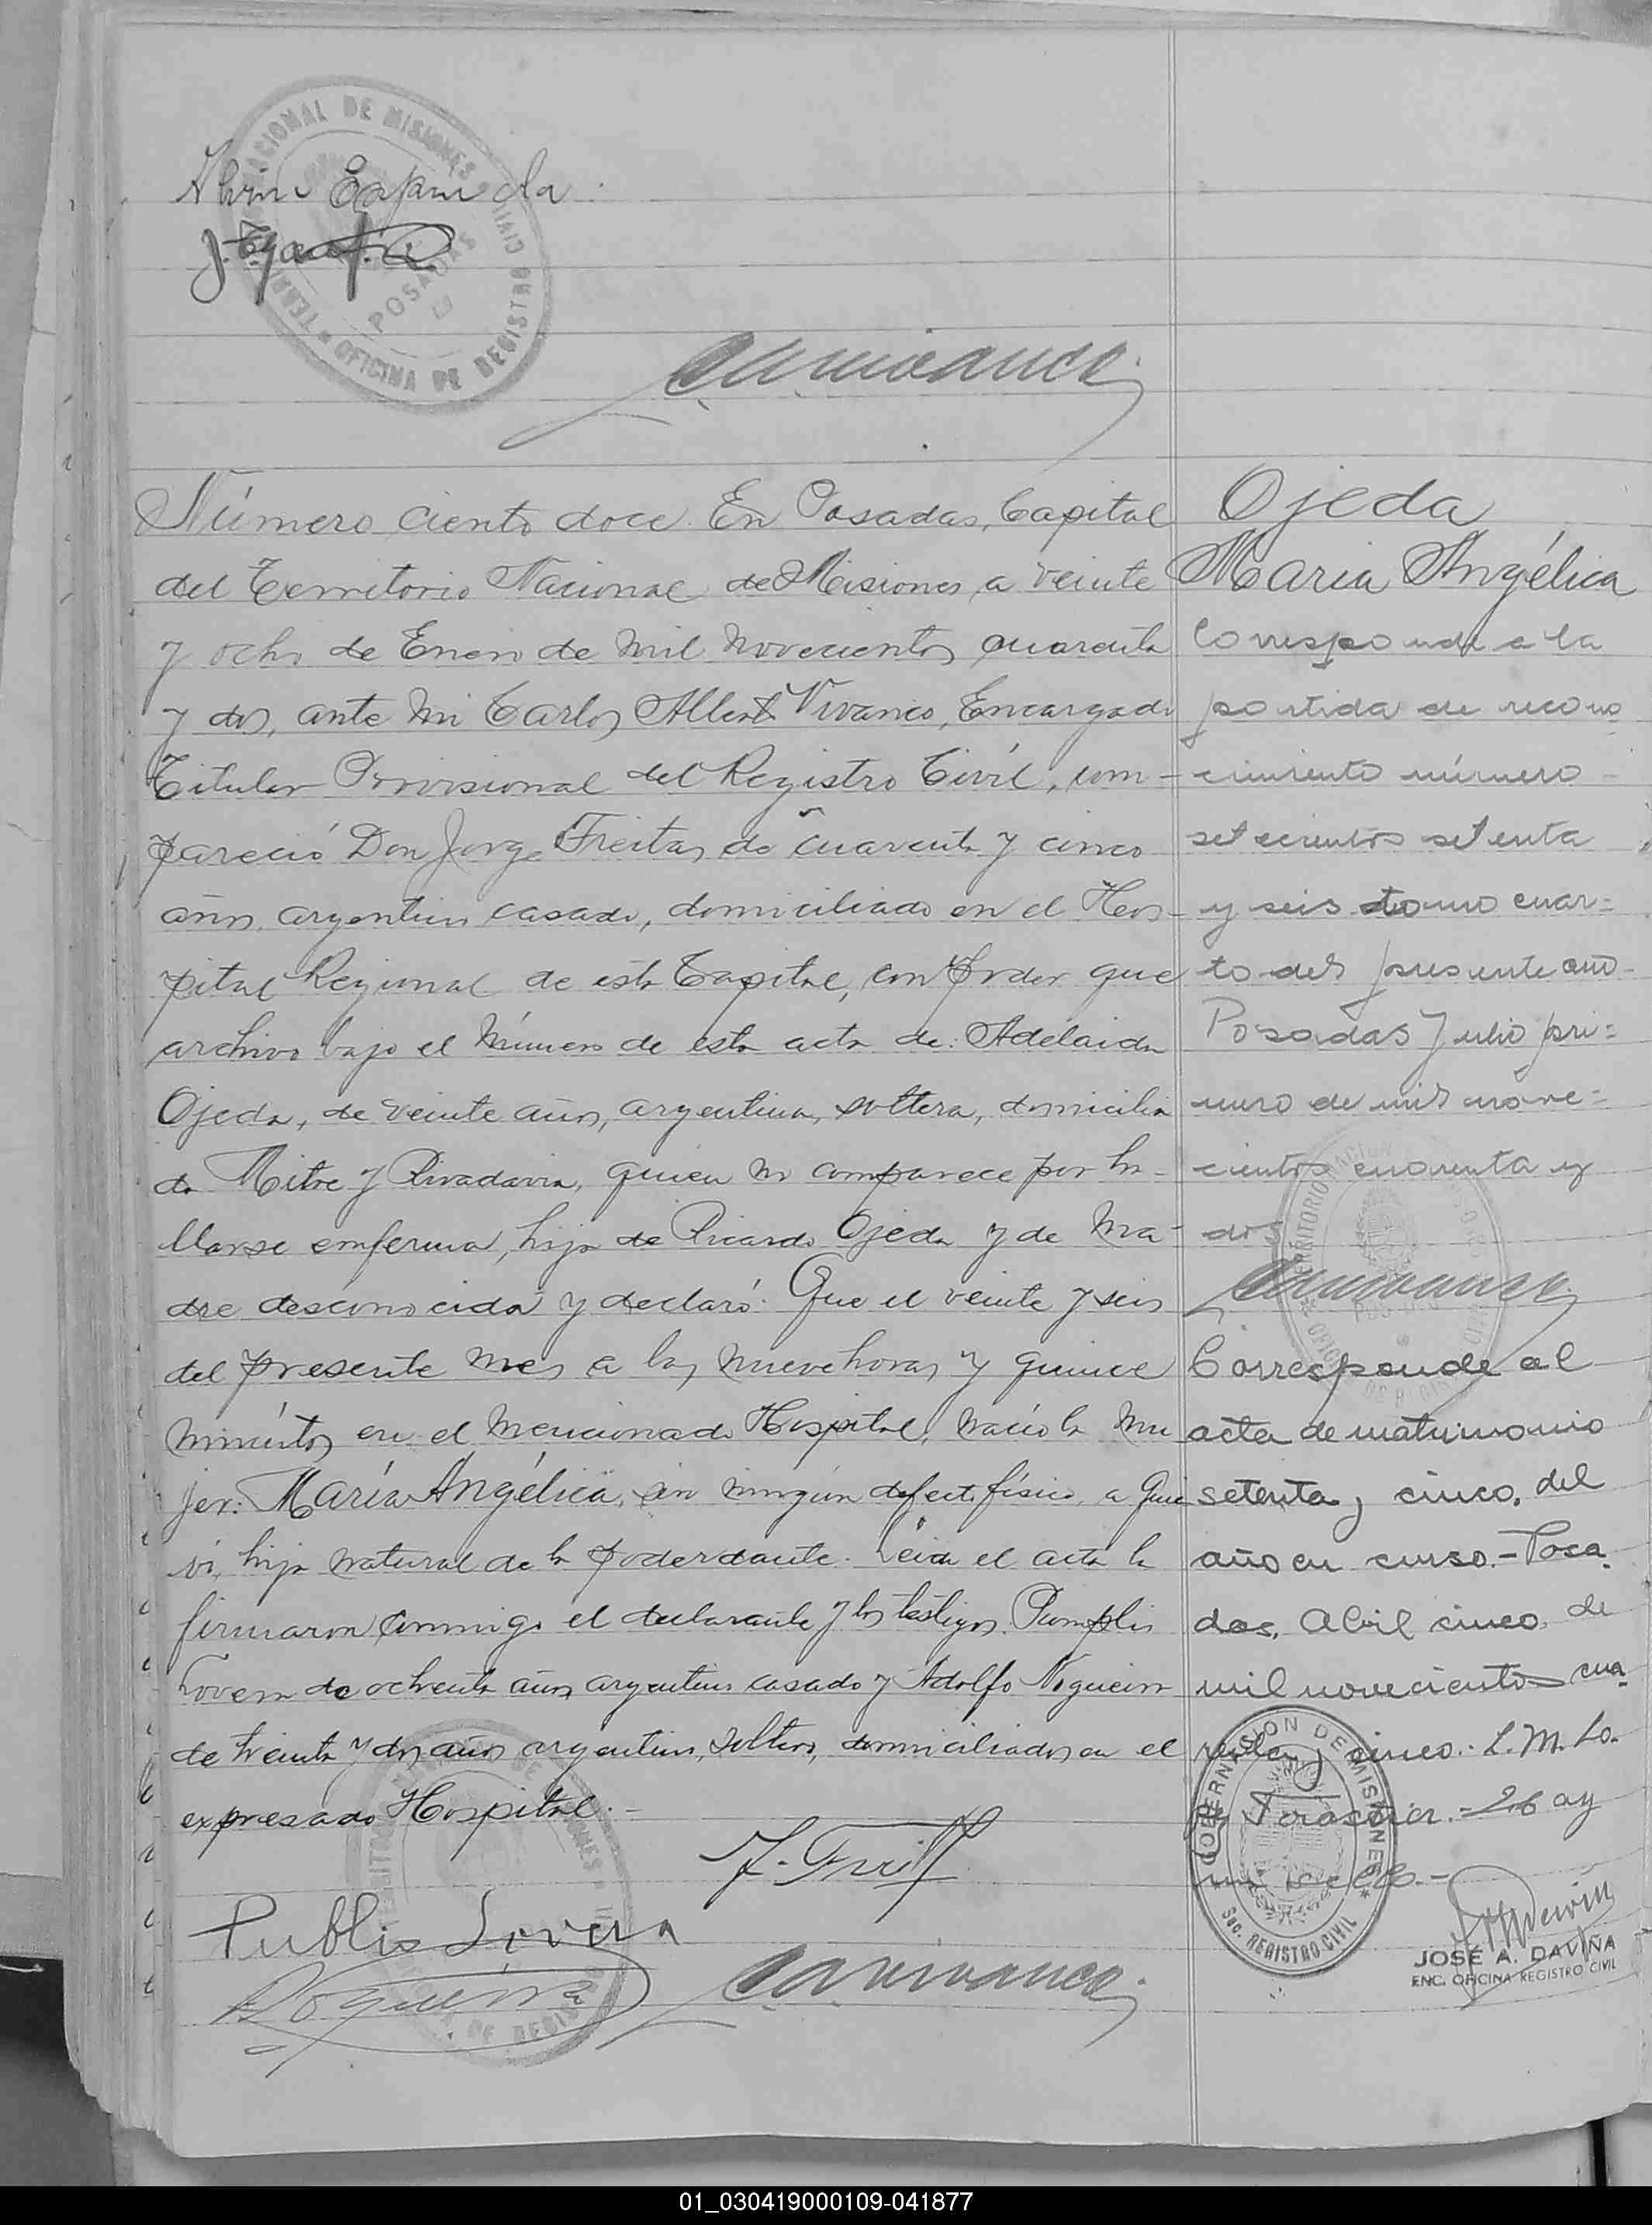 Número ciento doce. En Posadas, Capital
del Territorio Nacional de Misiones, a veinte
y ocho de Enero de mil novecientos cuarenta
y dos, ante mi Carlos Alberto Vivanco, Encargado
Titular Provisional del Registro Civil, com-
pareció Don Jorge Freitas de cuarenta y cinco
años, argentino casado, domiciliado en el Hos-
pital Regional de esta Capital, con poder que
archivo bajo el número de esta acta de: Adelaida
Ojeda, de veinte años, argentina, soltera, domicilia
da Mitre y Rivadavia, quien no comparece por ha-
llarse enferma, hija de Ricardo Ojeda y de ma-
dre desconocida y declaró: Que el veinte y seis
del presente mes a las nueve horas y quince
minutos en el mencionado Hospital, nació la mu
jer: María Angélica, sin ningún defecto físico, a quien
ví, hija natural de la poderdante. Leída el acta la
firmaron conmigo el declarante y los testigos
Lovera de ochenta años argentino casado y Adolfo Nogueira
de treinta y dos años argentino, soltero, domiciliados en el
expresado Hospital.-
Publio Lovera
Nogueira
Ojeda
Maria Angélica
Corresponde a la
partida de recono
cimiento número
setecientos setenta
y seis tomo cuar=
to del presente año-
Posadas Julio pri=
mero de mil nove=
cientos cuarenta y
dos
Corresponde al
acta de matrimonio
setenta y cinco, del
año en curso.- Posa
das, Abril cinco, de
mil novecientos cua
renta y cinco.- L. M. Lo.
JOSÉ A. DAVIÑA
ENC. OFICINA REGISTRO CIVIL
GOBERNACION DE MISIONES
SEC. REGISTRO CIVIL
OFICINA DE REGISTRO CIVIL
POSADAS
01_030419000109-041877